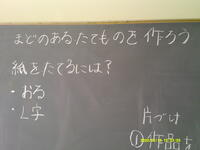 まどのあるたてものを作ろう
紙をたてるには?
・おる
・L字
片づけ
①作品を